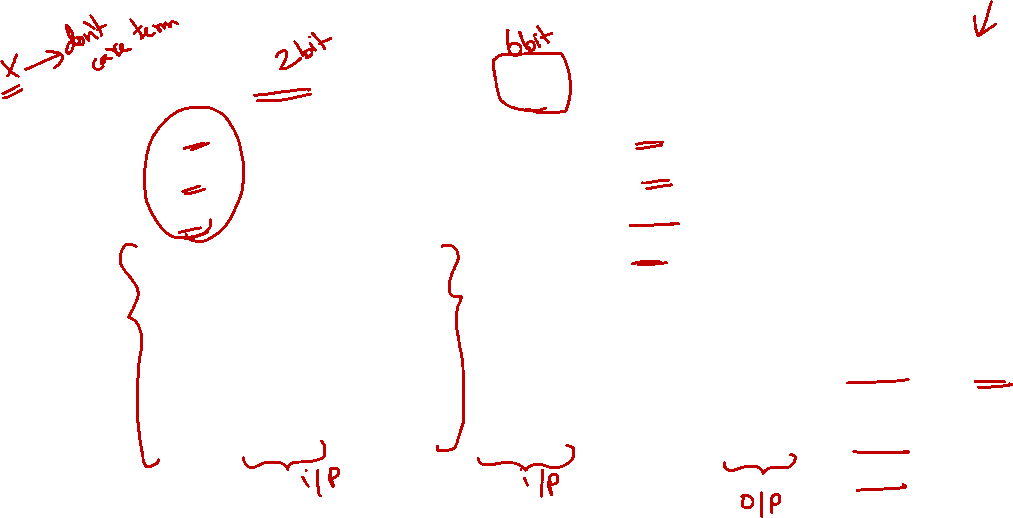 X → don't
care term
2bit
6bit
i/p
i/p
o/p